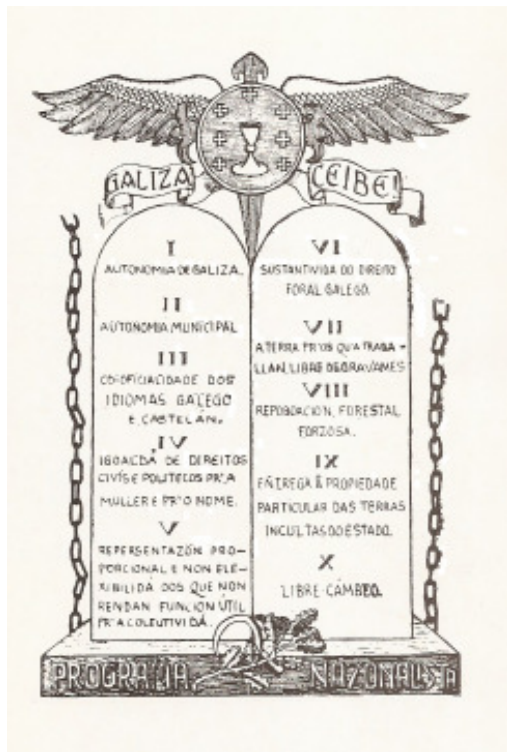 GALIZA CEIBE!
I
AUTONOMIA DE GALIZA.
II
AUTONOMIA MUNICIPAL
III
CO-OFICIALIDADE DOS
IDIOMAS GALEGO
E CASTELÁN.
IV
IGOALDÁ DE DIREITOS
CIVÍS E POLITECOS PR'A
MULLER E PR'O HOME.
V
REPERSENTAZÓN PRO-
PORCIONAL E NON ELE-
XIBILIDÁ DOS QUE NON
RENDAN FUNCION ÚTIL
PR'A COLEUTIVIDÁ.
VI
SUSTANTIVIDA DO DIREITO
FORAL GALEGO.
VII
A TERRA PR'OS QU'A TRABA-
LLAN, LIBRE DEGRAVAMES
VIII
REPOBOACION, FORESTAL
FORZOSA.
IX
EÑTREGA Â PROPIEDADE
PARTICULAR DAS TERRAS
INCULTAS DO ESTADO.
X
LIBRE-CÁMBEO.
PROGRAMA NAZONALISTA